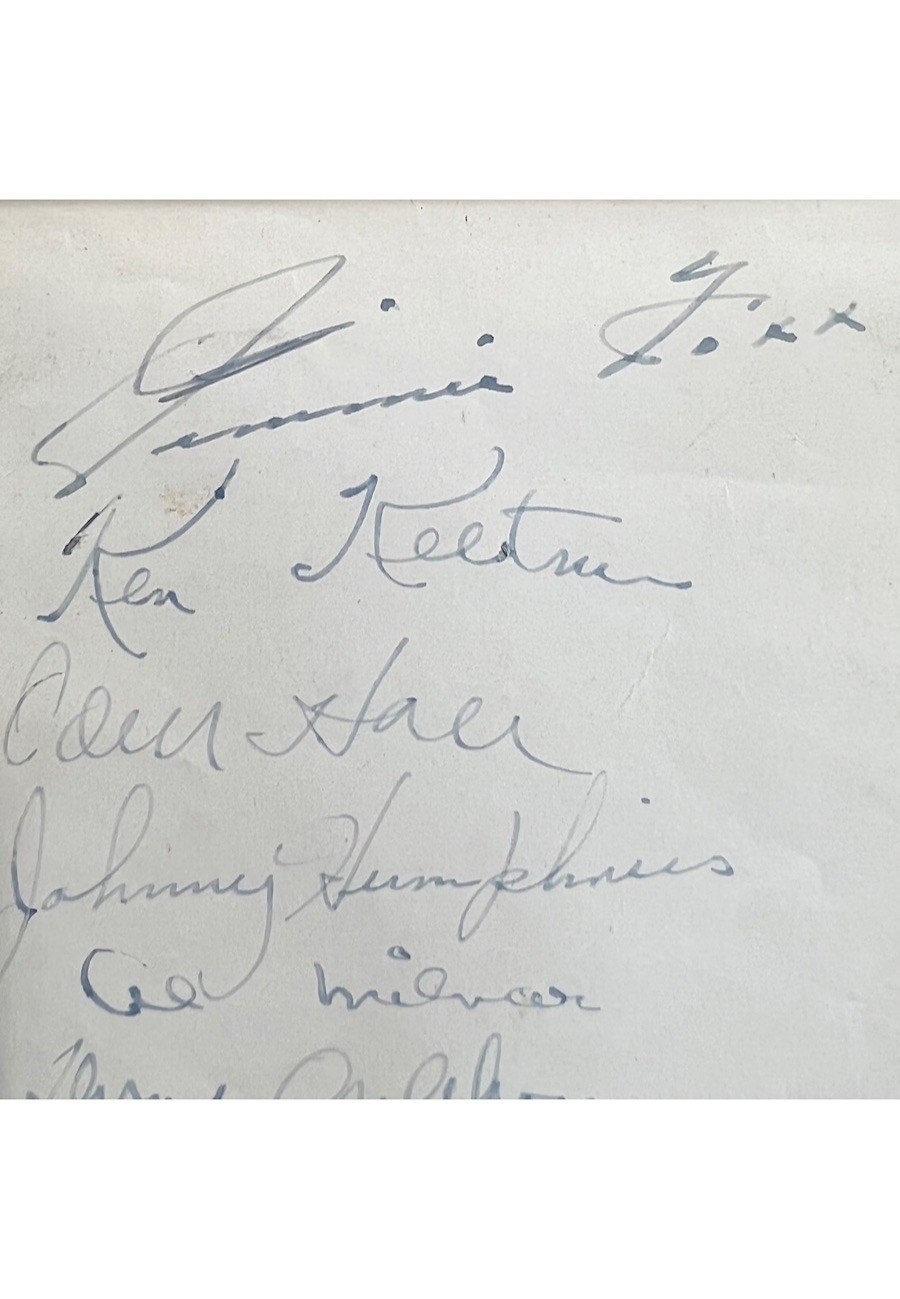 Jimmie Foxx
Ken Keltner
Odell Hale
Johnny Humphries
Al Milnar